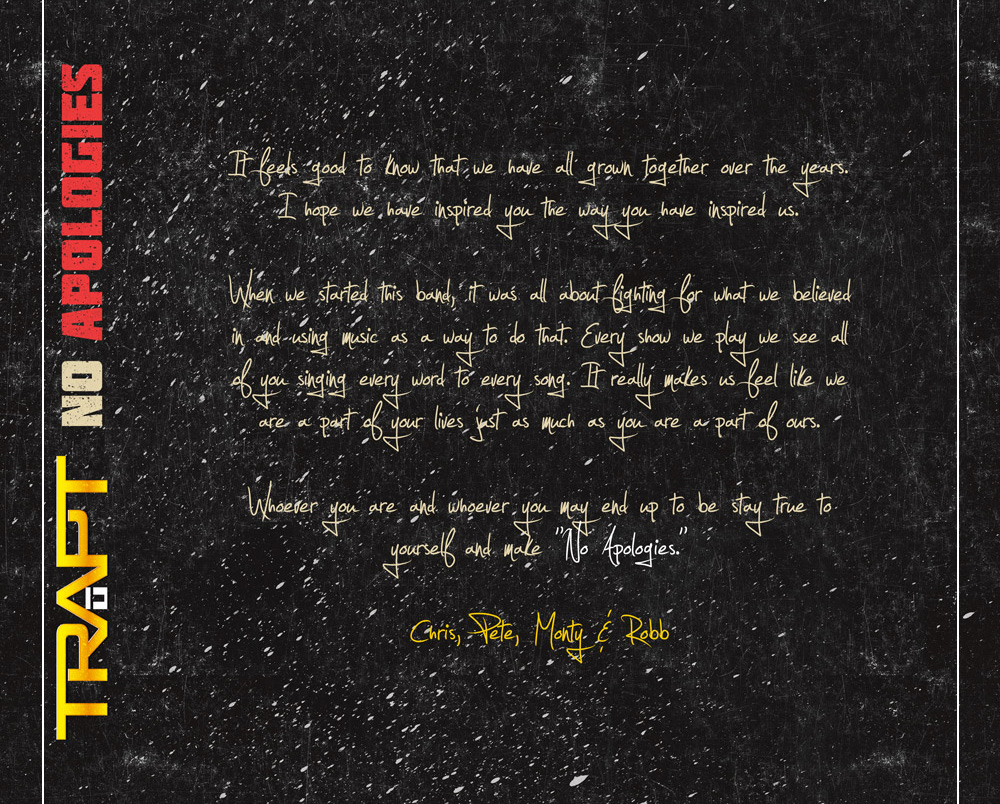 TRAPT NO APOLOGIES
It feels good to know that we have all grown together over the years.
I hope we have inspired you the way you have inspired us.
When we started this band, it was all about fighting for what we believed
in and using music as a way to do that. Every show we play we see all
of you singing every word to every song. It really makes us feel like we
are a part of your lives just as much as you are a part of ours.
Whoever you are and whoever you may end up to be stay true to
yourself and make "No Apologies."
Chris, Pete, Monty & Robb